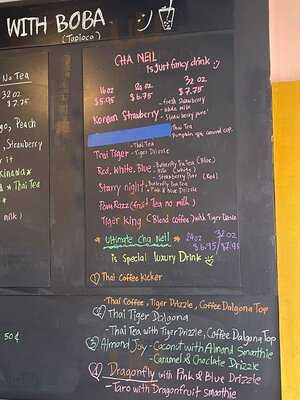 WITH BOBA
(Tapioca)
No Tea
32 oz
$7.75
Peach
Strawberry
& Thai Tea
milk)
50¢
CHA NEIL
Is just fancy drink
16 oz 20 oz 32 oz
$5.95 $6.75 $7.75
Korean Strawberry - fresh strawberry
- whole milk
- Strawberry puree
Thai Tea
Pumpkin spice
Thai Tiger - Thai Tea
- Tiger Drizzle
Red, White, Blue - Butterfly Pea Tea (Blue)
- Milk (White)
- Strawberry (Red)
Starry night - Butterfly Pea Tea
- Pink & Blue Drizzle
Pom Razz (fruit tea no milk)
Tiger King (Blend coffee) with Tiger Drizzle
* Ultimate Cha Neil * 24 oz 32 oz
$6.95/$7.95
is Special luxury Drink
① Thai Coffee Kicker
- Thai Coffee, Tiger Drizzle, Coffee Dalgona Top
② Thai Tiger Dalgona
- Thai Tea with Tiger Drizzle, Coffee Dalgona Top
③ Almond Joy - Coconut with Almond Smoothie
- Caramel & Choclate Drizzle
④ Dragonfly with Pink & Blue Drizzle
- Taro with Dragonfruit smoothie